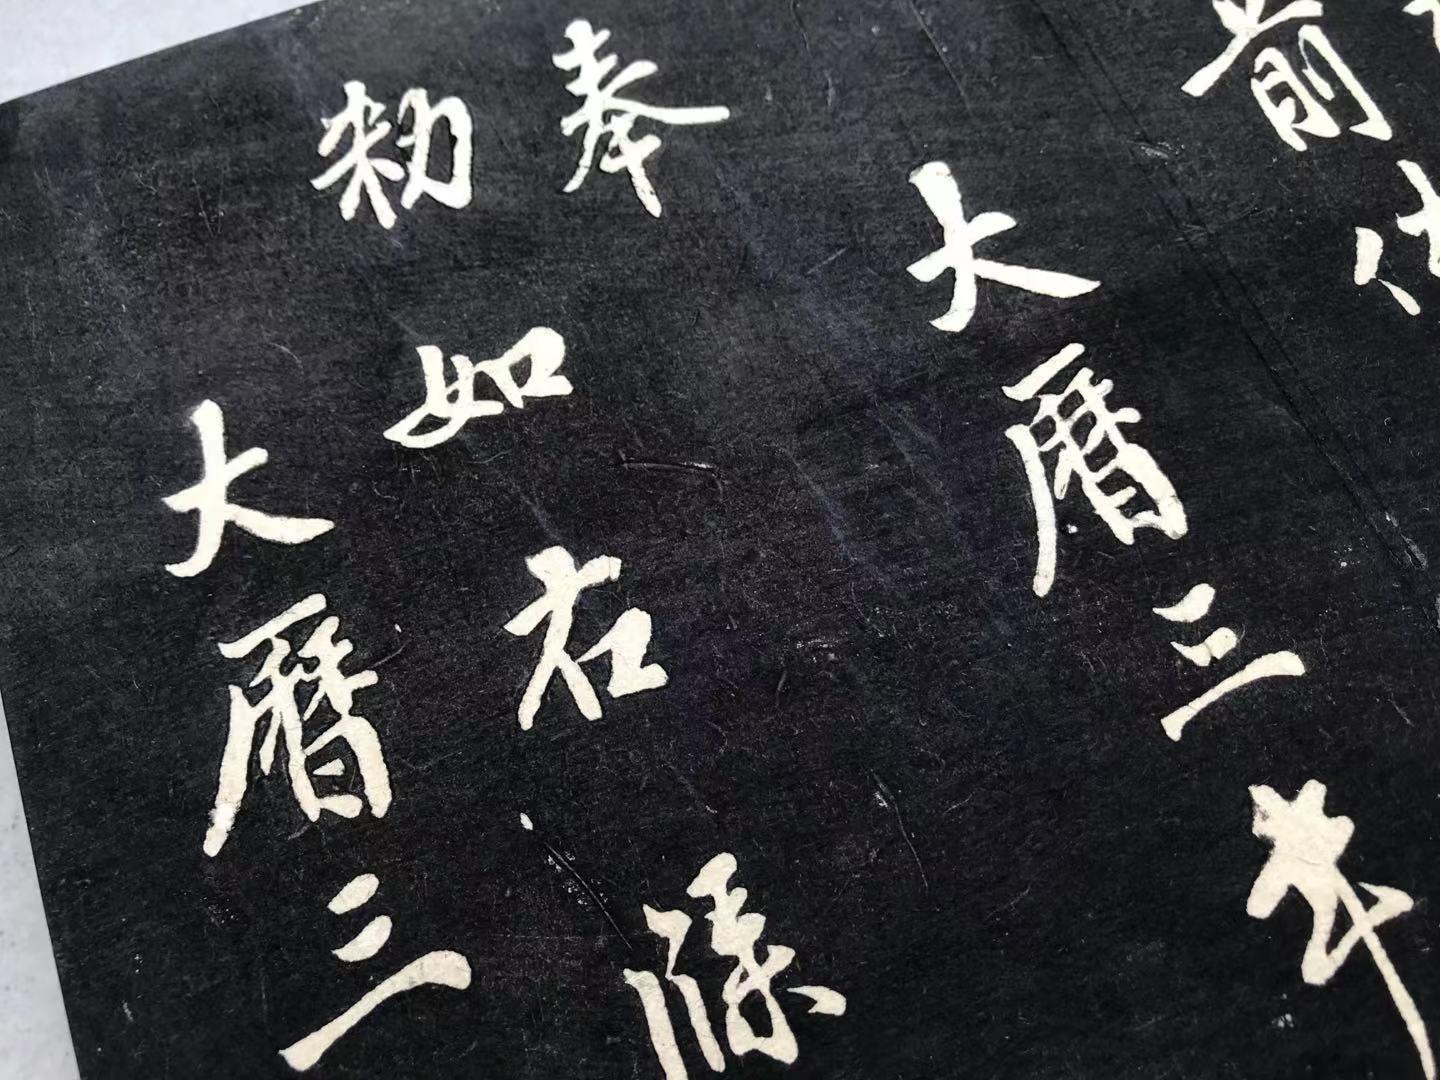 前
大曆三年
奉
勑如右牒
大曆三